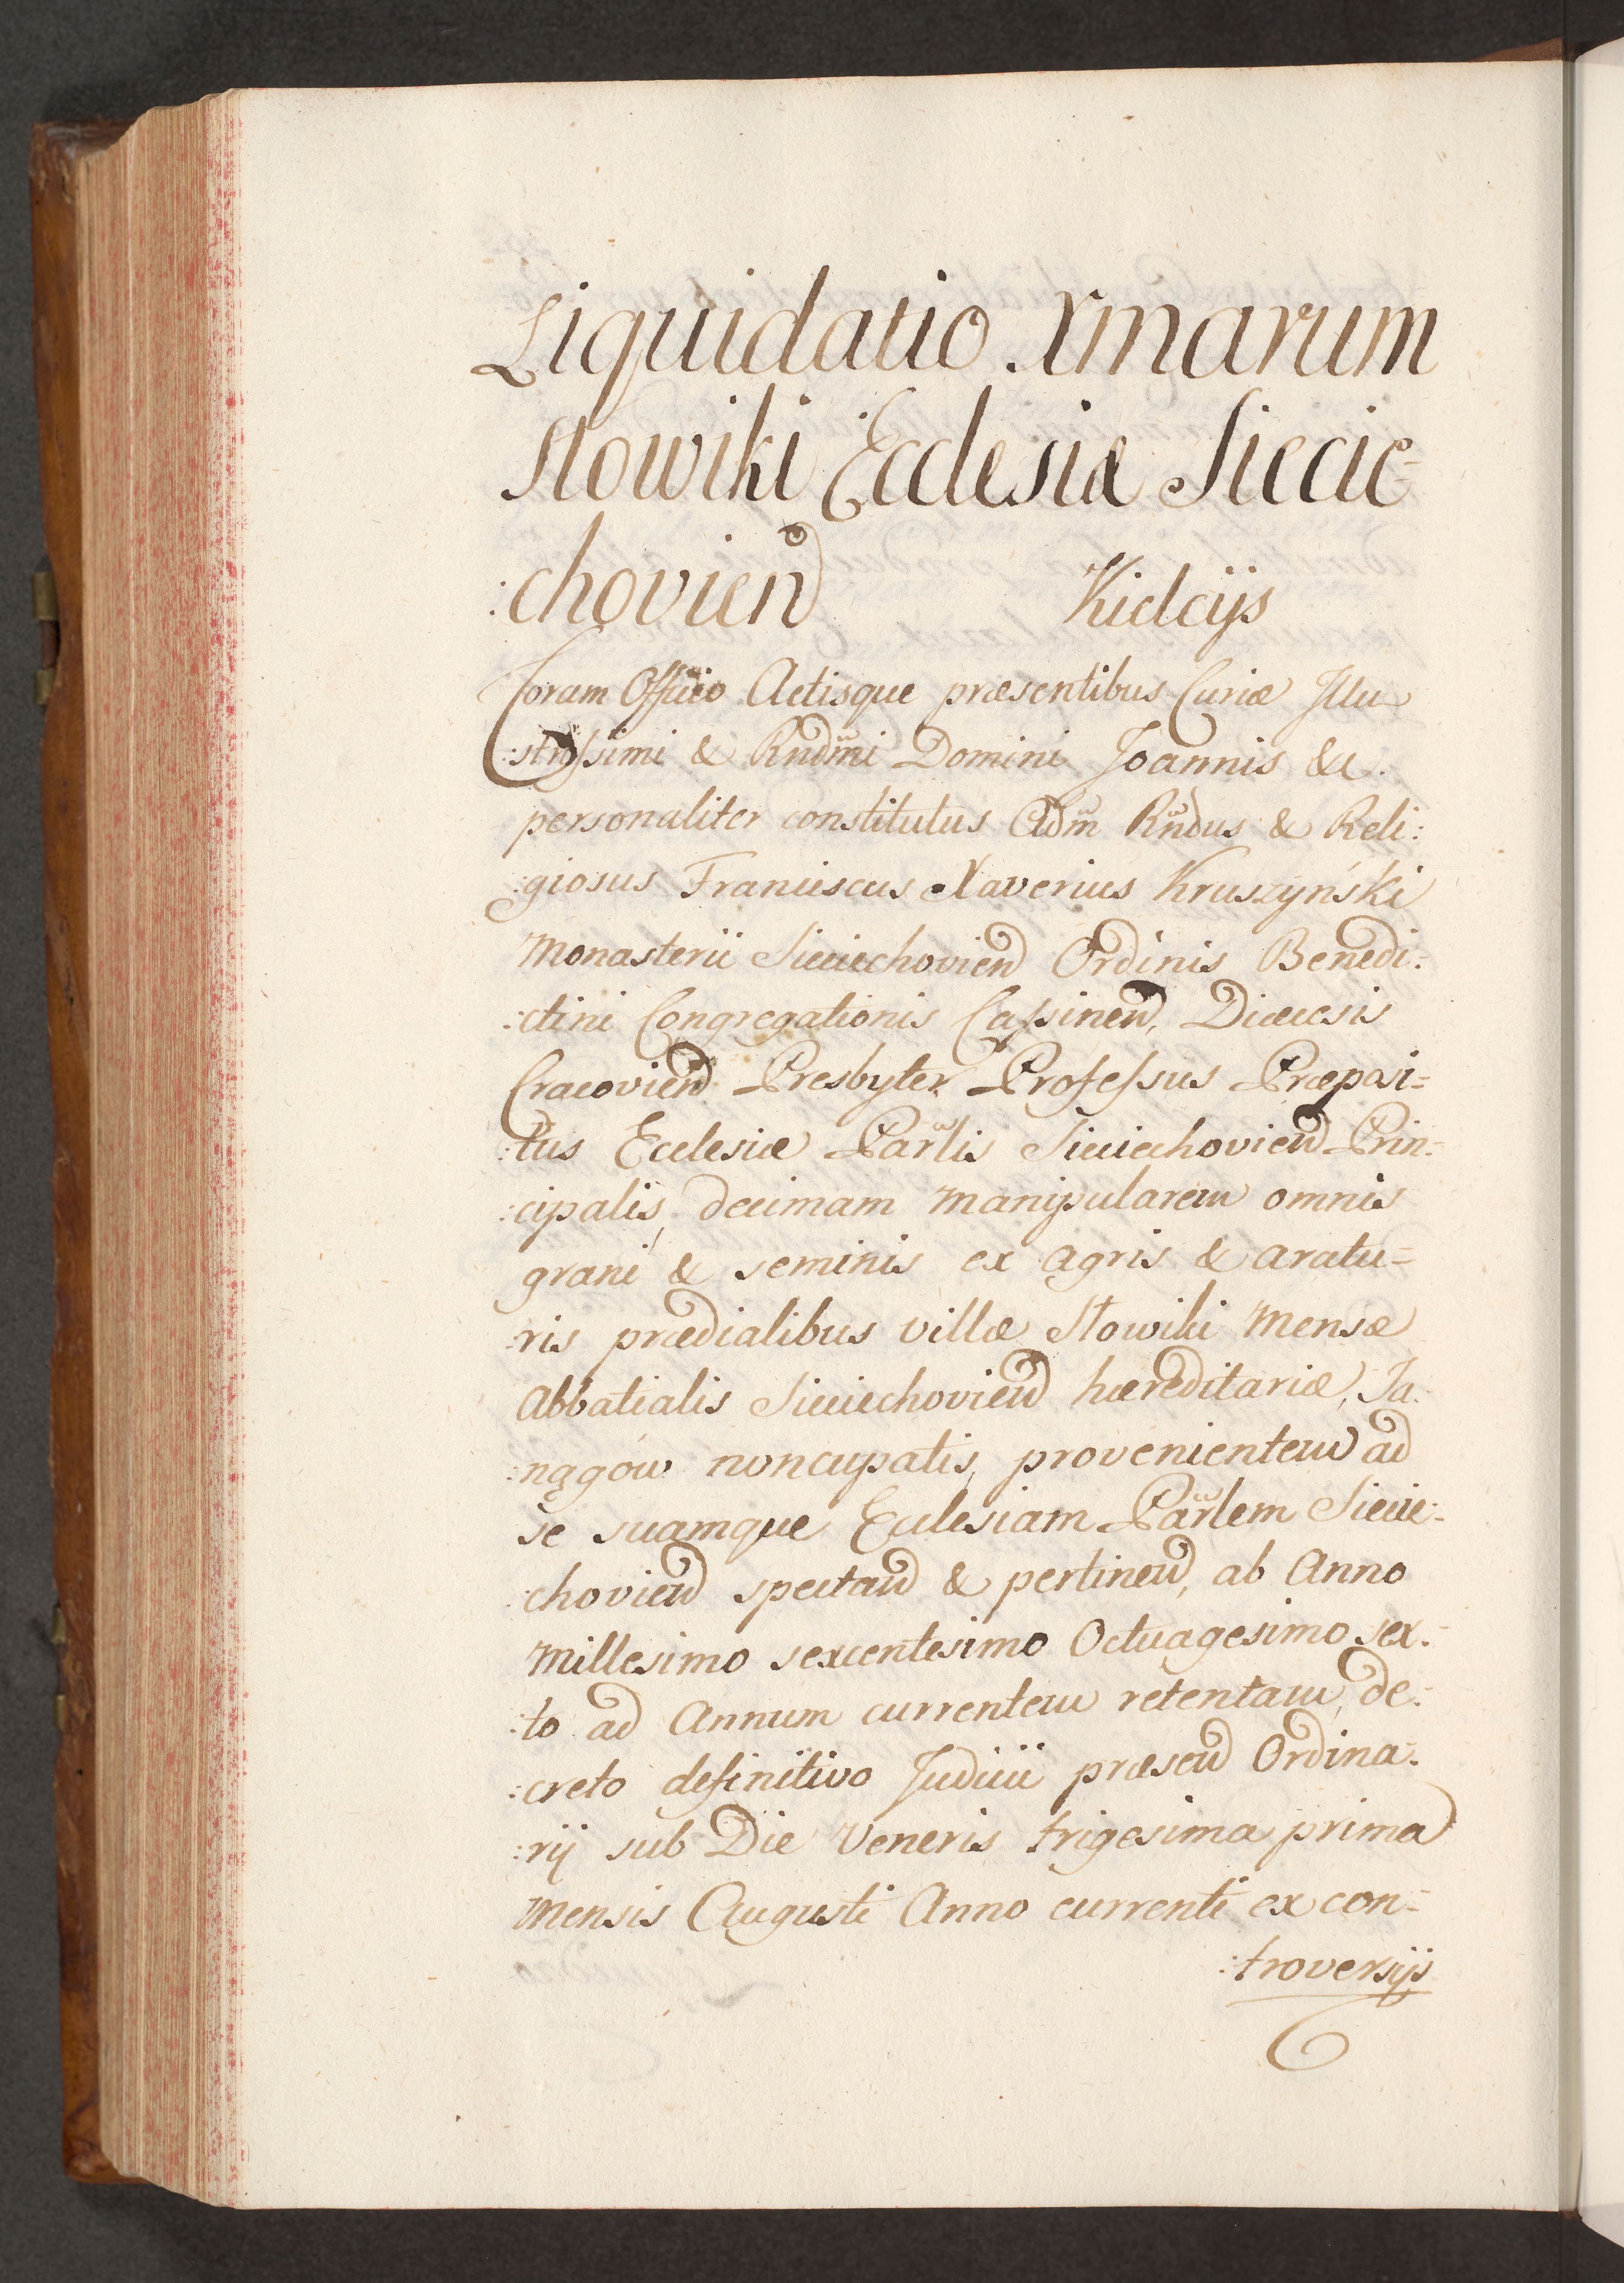 Liquidatio Xmarum
Słowiki Ecclesiæ Siecie=
:chovien Kielcijs
Coram Officio Actisque præsentibus Curiæ Illu
:strissimi & Rndmi Domini Joannis &c.
personaliter constitutus Adm Rndus & Reli:
:giosus Franciscus Xaverius Kruszyński
Monasterii Sieciechovien Ordinis Benedi:
:ctini Congregationis Cassinen, Diæcesis
Cracovien Presbyter Professus Præposi=
:tus Ecclesiæ Parlis Sieciechovien Prin:
:cipalis, decimam manipularem omnis
grani & seminis ex agris & aratu=
:ris prædialibus villæ Słowiki Mensæ
Abbatialis Sieciechovien hæreditariæ, Ja:
:nągow noncupatis, provenientem ad
se suamque Ecclesiam Parlem Siecie:
:chovien spectan & pertinen, ab Anno
Millesimo sexcentesimo Octuagesimo sex:
:to ad Annum currentem retentam, de:
:creto definitivo Judicii præsen Ordina:
:rij sub Die Veneris trigesima prima
Mensis Augusti Anno currenti ex con=
:troversijs